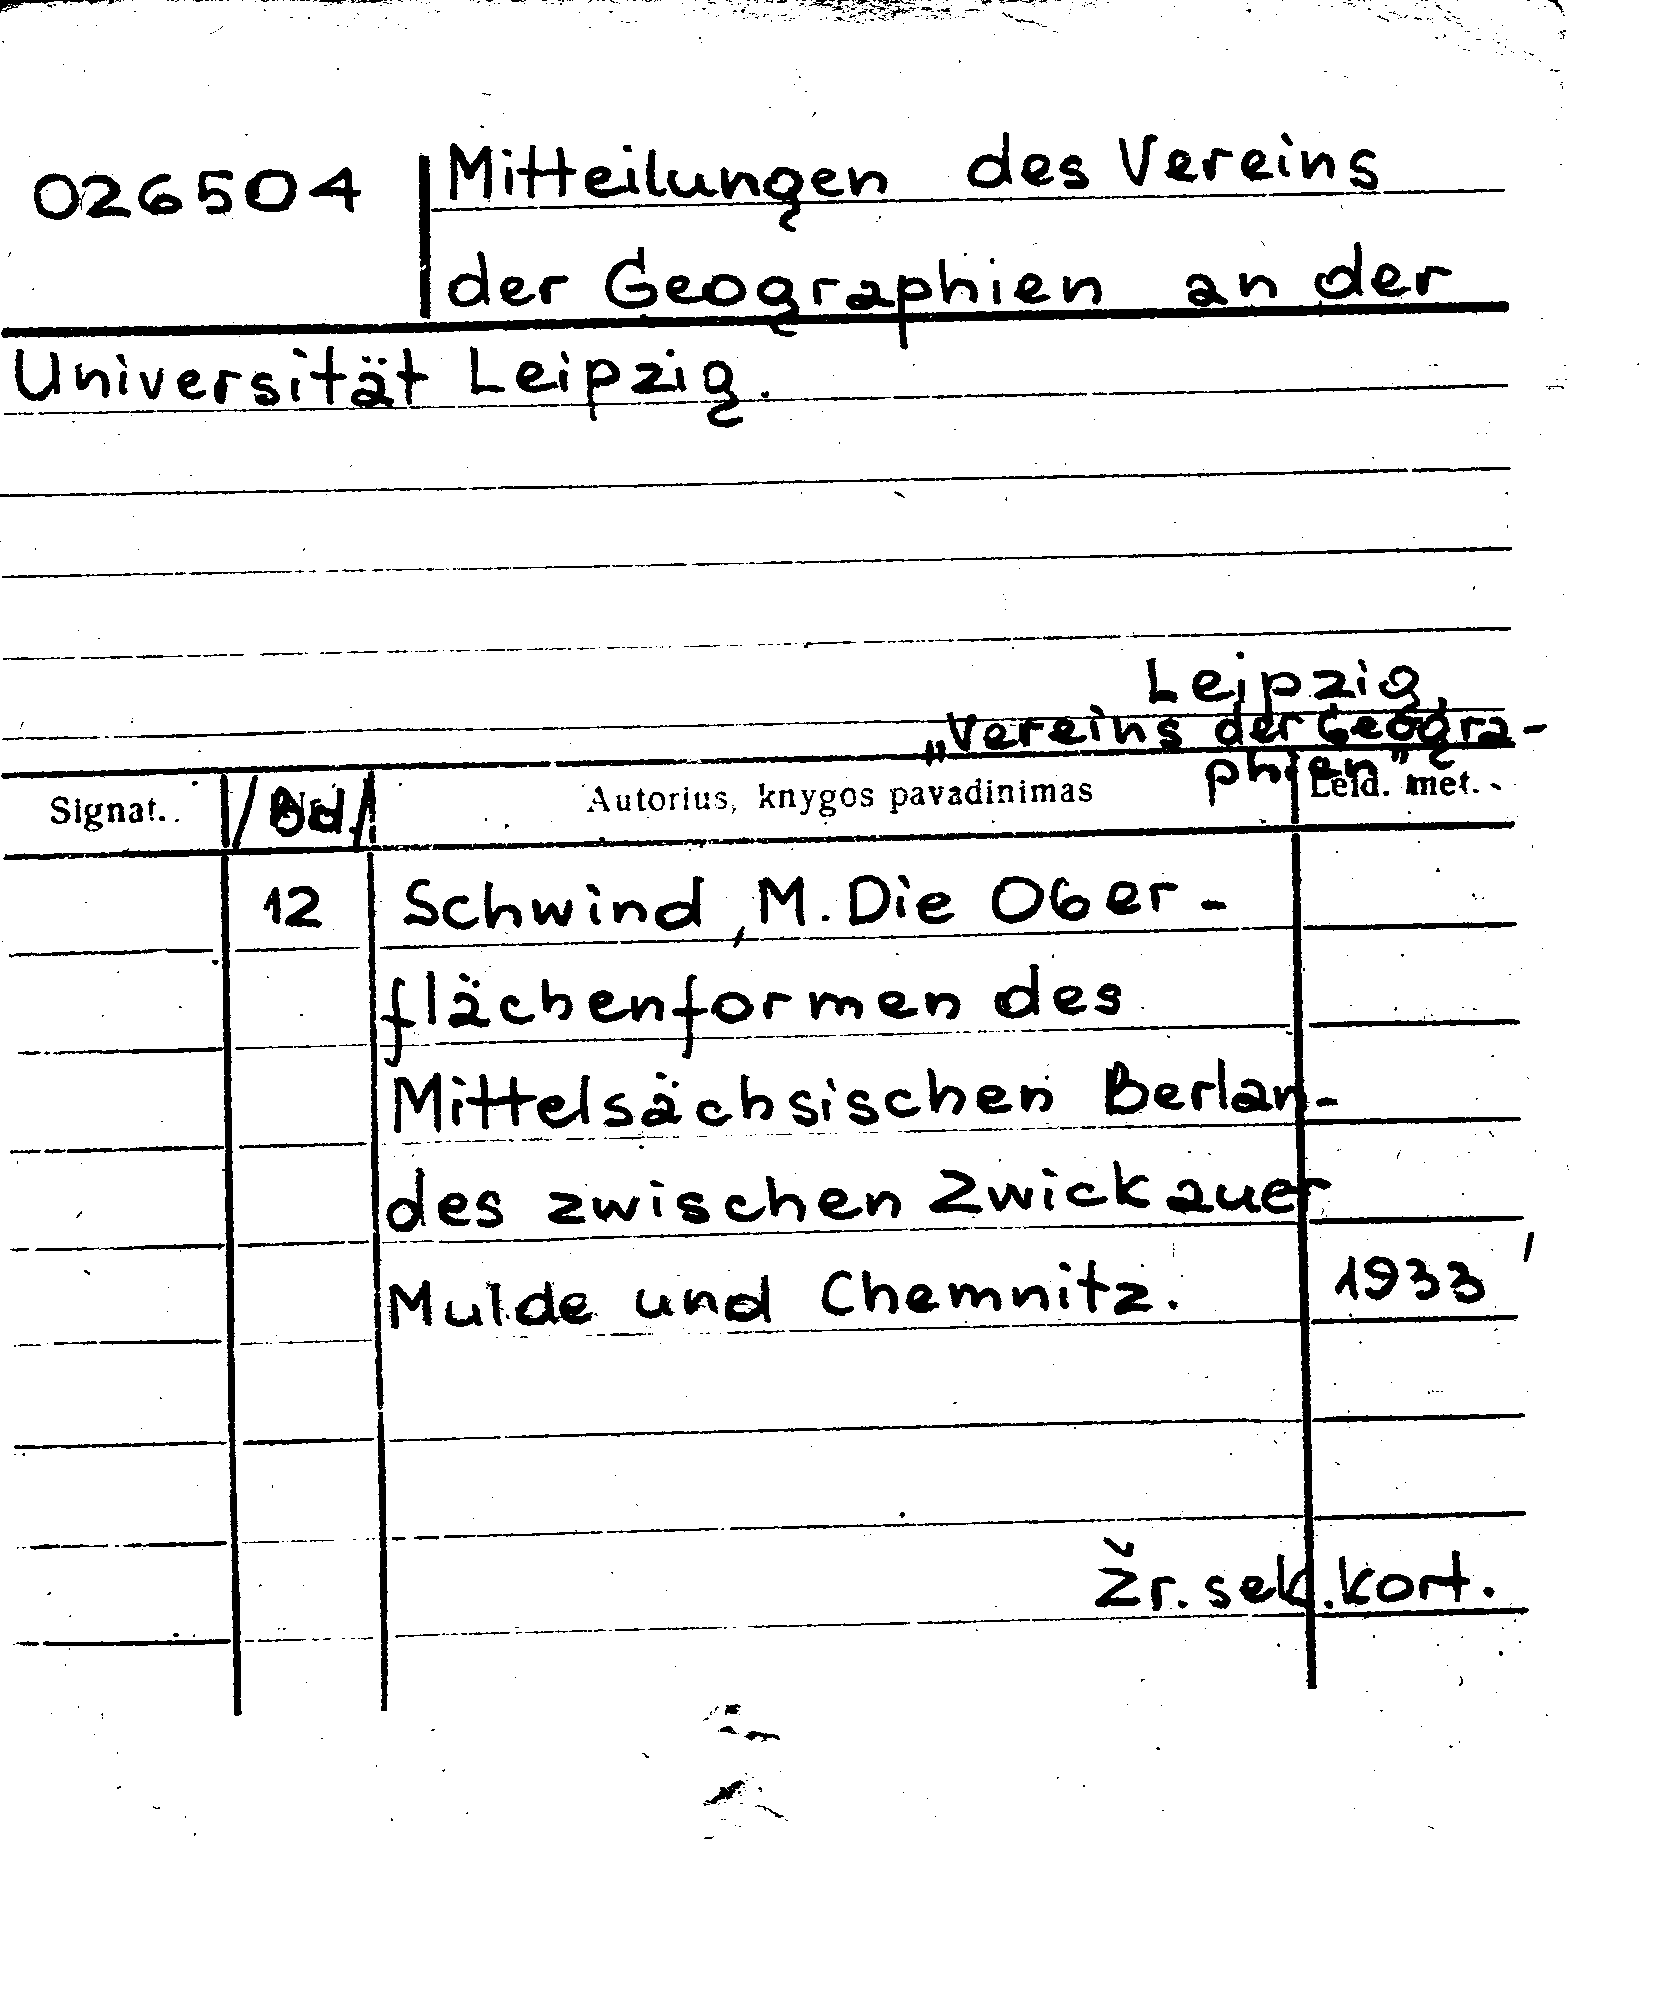 026504 Mitteilungen des Vereins
der Geographien an der
Universität Leipzig.
Leipzig,
„Vereins der Geogra-
phien"
Signat. /Bd./ Autorius, knygos pavadinimas Leid. met.
12 Schwind, M. Die Ober-
flächenformen des
Mittelsächsischen Berlan-
des zwischen Zwickauer
Mulde und Chemnitz. 1933
Žr. sek. kort.